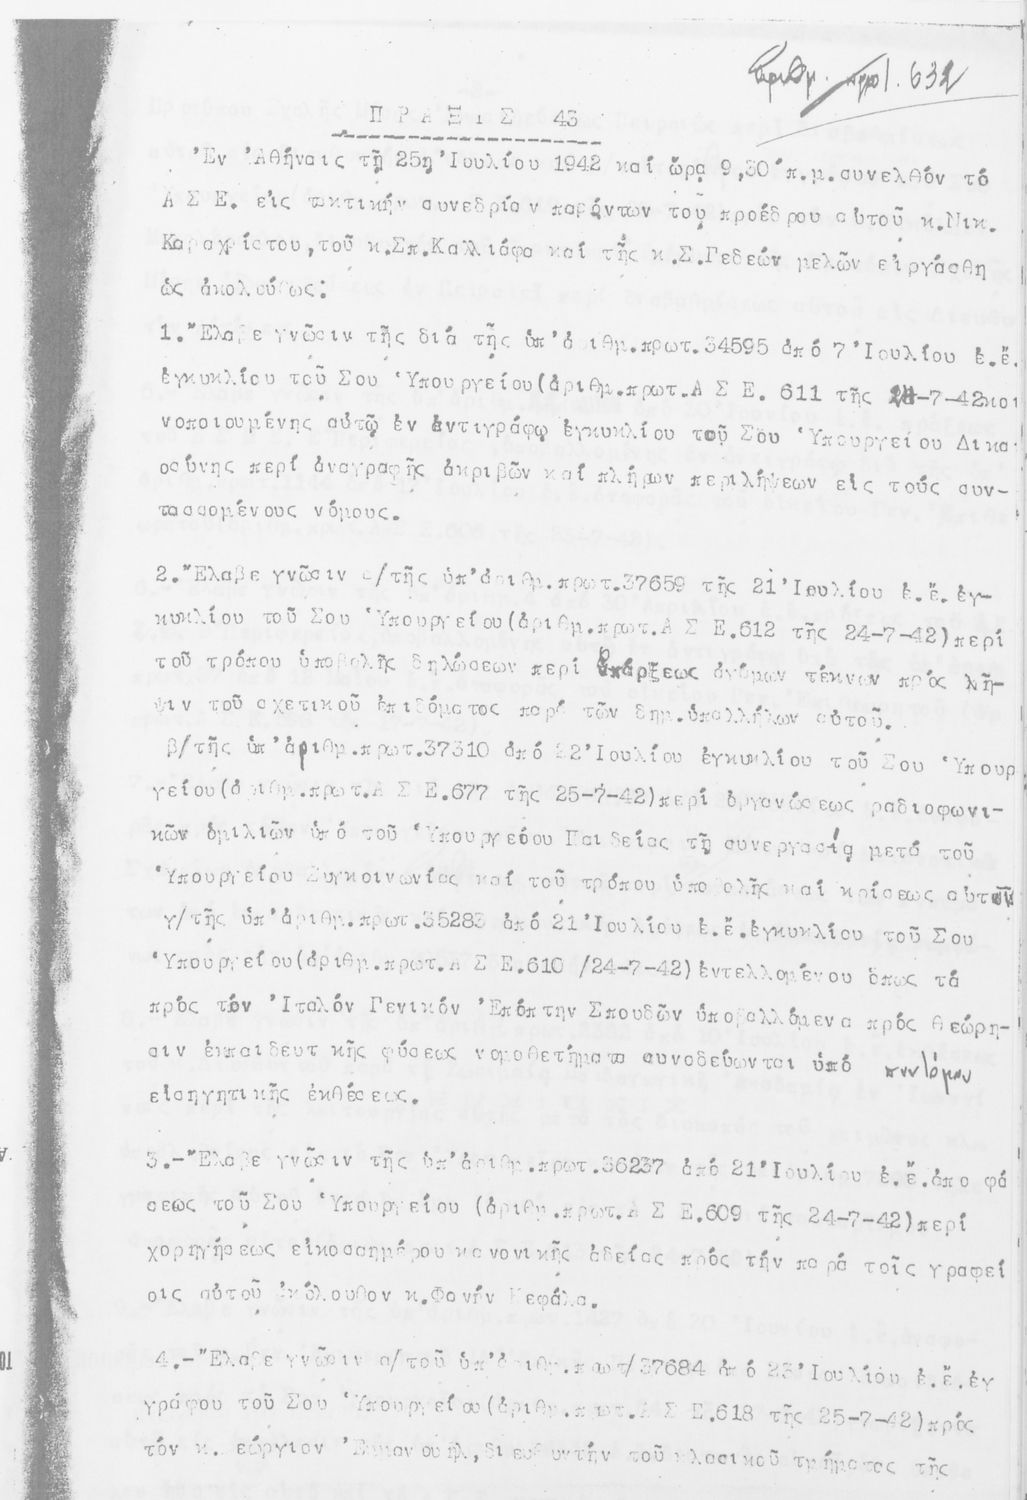 ἀριθμ. πρωτ. 632
ΠΡΑΞΙΣ 43
Ἐν Ἀθήναις τῇ 25ῃ Ἰουλίου 1942 καί ὥρᾳ 9,30' π.μ.συνελθόν τό
Α Σ Ε. εἰς τακτικήν συνεδρίαν παρόντων τοῦ προέδρου αὐτοῦ κ.Νικ.
Καραχρίστου,τοῦ κ.Σπ.Καλλιάφα καί τῆς κ.Σ.Γεδεών μελῶν εἰργάσθη
ὡς ἀκολούθως:
1.Ἔλαβε γνῶσιν τῆς διά τῆς ὑπ'ἀριθμ.πρωτ.34595 ἀπό 7 Ἰουλίου ἐ.ἔ.
ἐγκυκλίου τοῦ Σου Ὑπουργείου(ἀριθμ.πρωτ.Α Σ Ε. 611 τῆς -7-42κοι
νοποιουμένης αὐτῷ ἐν ἀντιγράφῳ ἐγκυκλίου τοῦ Σου Ὑπουργείου Δικαι
οσύνης περί ἀναγραφῆς ἀκριβῶν καί πλήρων περιλήψεων εἰς τούς συν-
τασσομένους νόμους.
2.Ἔλαβε γνῶσιν α/τῆς ὑπ'ἀριθμ.πρωτ.37659 τῆς 21 Ἰουλίου ἐ.ἔ.ἐγ-
κυκλίου τοῦ Σου Ὑπουργείου(ἀριθμ.πρωτ.Α Σ Ε.612 τῆς 24-7-42)περί
τοῦ τρόπου ὑποβολῆς δηλώσεων περί ὑπάρξεως ἀγάμων τέκνων πρός λῆ-
ψιν τοῦ σχετικοῦ ἐπιδόματος παρά τῶν δημ.ὑπαλλήλων αὐτοῦ.
β/τῆς ὑπ'ἀριθμ.πρωτ.37310 ἀπό 22 Ἰουλίου ἐγκυκλίου τοῦ Σου Ὑπουρ
γείου(ἀριθμ.πρωτ.Α Σ Ε.677 τῆς 25-7-42)περί ὀργανώσεως ραδιοφωνι-
κῶν ὁμιλιῶν ὑπό τοῦ Ὑπουργείου Παιδείας τῇ συνεργασίᾳ μετά τοῦ
Ὑπουργείου Συγκοινωνίας καί τοῦ τρόπου ὑποβολῆς καί κρίσεως αὐτῶν
γ/τῆς ὑπ'ἀριθμ.πρωτ.35283 ἀπό 21 Ἰουλίου ἐ.ἔ.ἐγκυκλίου τοῦ Σου
Ὑπουργείου(ἀριθμ.πρωτ.Α Σ Ε.610 /24-7-42)ἐντελλομένου ὅπως τά
πρός τόν Ἰταλόν Γενικόν Ἐπόπτην Σπουδῶν ὑποβαλλόμενα πρός θεώρη-
σιν ἐκπαιδευτικῆς φύσεως νομοθετήματα συνοδεύωνται ὑπό συντόμου
εἰσηγητικῆς ἐκθέσεως.
3.-Ἔλαβε γνῶσιν τῆς ὑπ'ἀριθμ.πρωτ.36237 ἀπό 21 Ἰουλίου ἐ.ἔ.ἀπο φά
σεως τοῦ Σου Ὑπουργείου (ἀριθμ.πρωτ.Α Σ Ε.609 τῆς 24-7-42)περί
χορηγήσεως εἰκοσαημέρου κανονικῆς ἀδείας πρός τήν παρά τοῖς γραφεί
οις αὐτοῦ ἀκόλουθον κ.Φανήν Κεφάλα.
4.-Ἔλαβε γνῶσιν α/τοῦ ὑπ'ἀριθμ.πρωτ/37684 ἀπό 23 Ἰουλίου ἐ.ἔ.ἐγ
γράφου τοῦ Σου Ὑπουργείου(ἀριθμ.πρωτ.Α Σ Ε.618 τῆς 25-7-42)πρός
τόν κ. Γεώργιον Ἐμμανουήλ,διευθυντήν τοῦ κλασικοῦ τμήματος τῆς